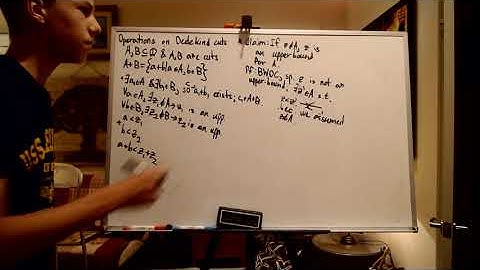 Operations on Dedekind cuts
A,B⊆ℚ & A,B are cuts
A+B={a+b|a∈A, b∈B}
∃a∈A & ∃b∈B, so a+b exists, ∈A+B.
∀a∈A, ∃z₁∉A→z₁ is an upp.
∀b∈B, ∃z₂∉B→z₂ is an upp.
a<z₁
+b<z₂
a+b<z₁+z₂
Claim: If z∉A, z is
an upper bound
for A.
PF: BWOC, sp. z is not an
upper bound. ∃ ∈A s.t.
we assumed
z∉A